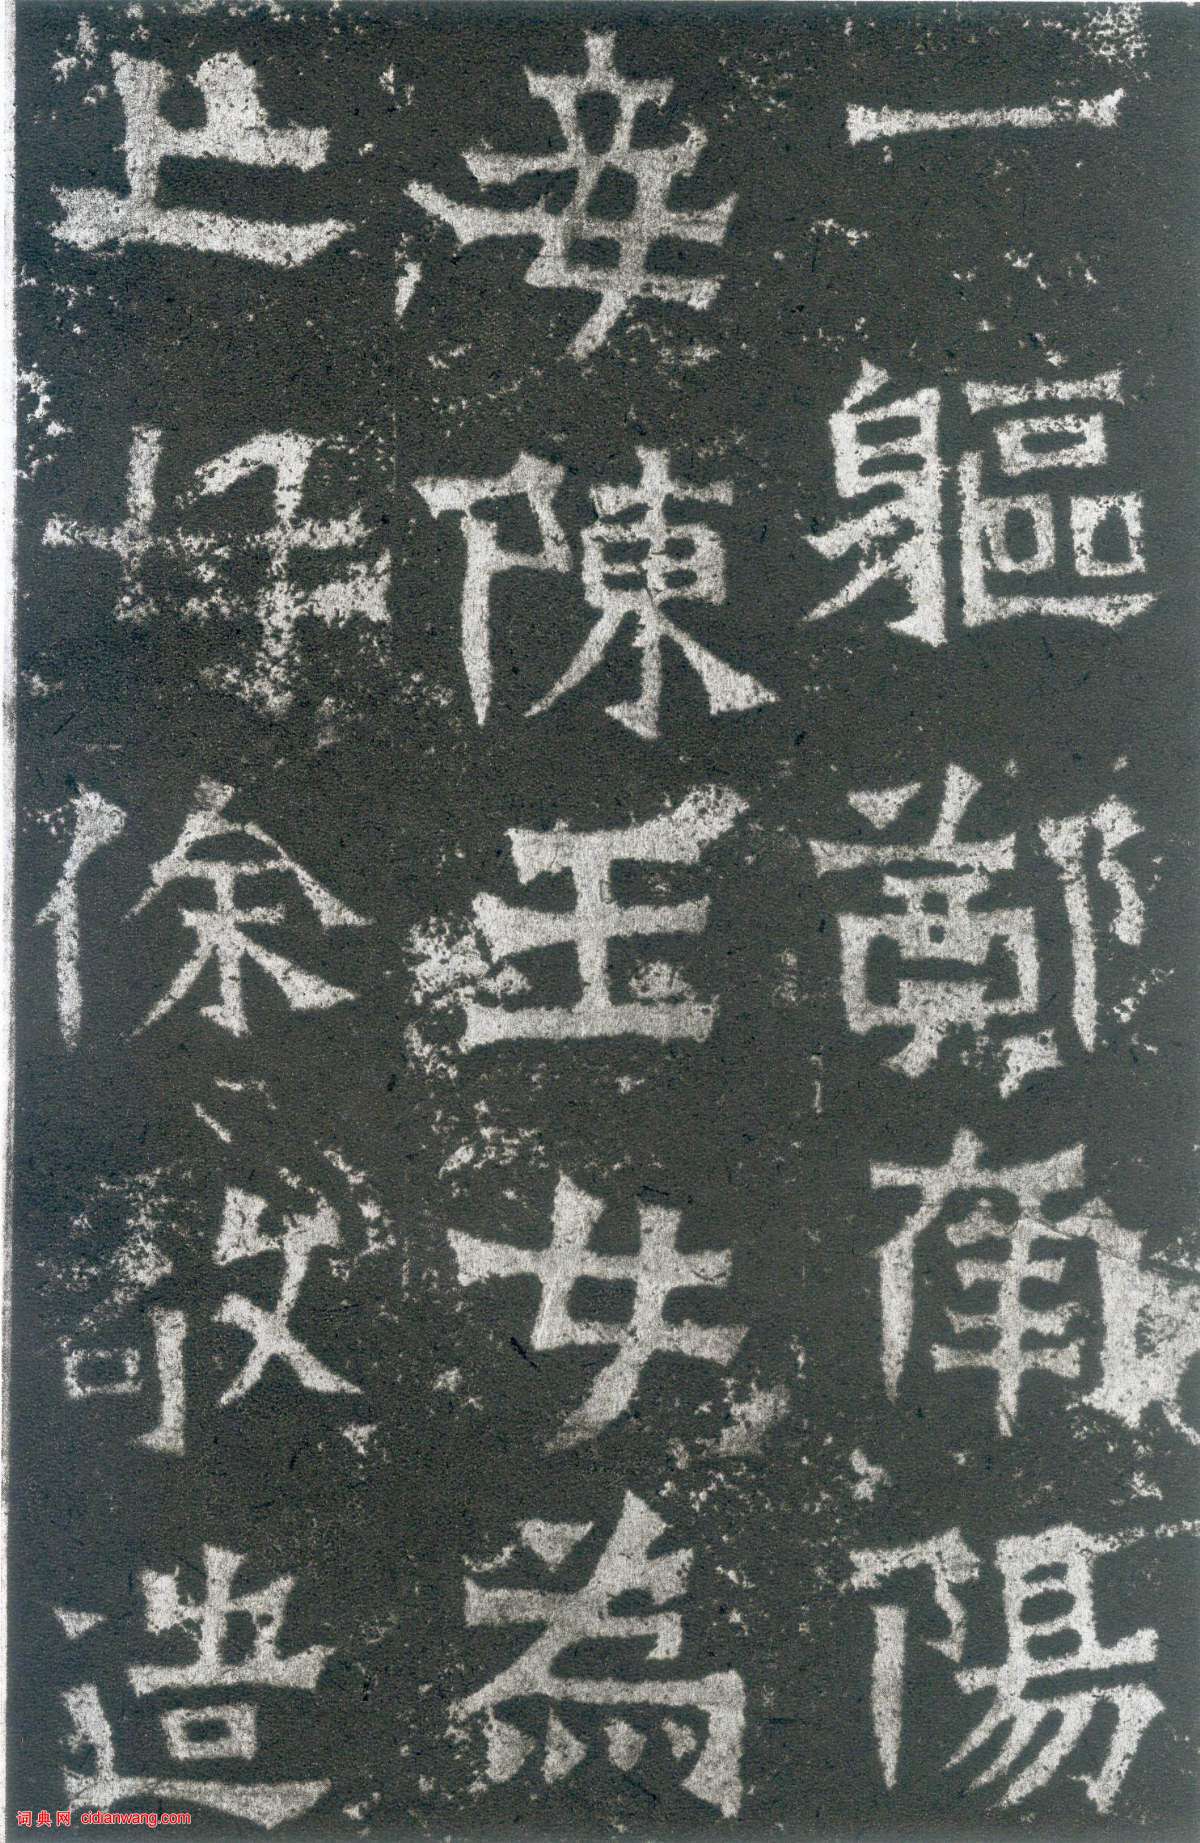 一軀鄭南陽
妾陳玉女為
亡母徐敬造
词典网 cidianwang.com